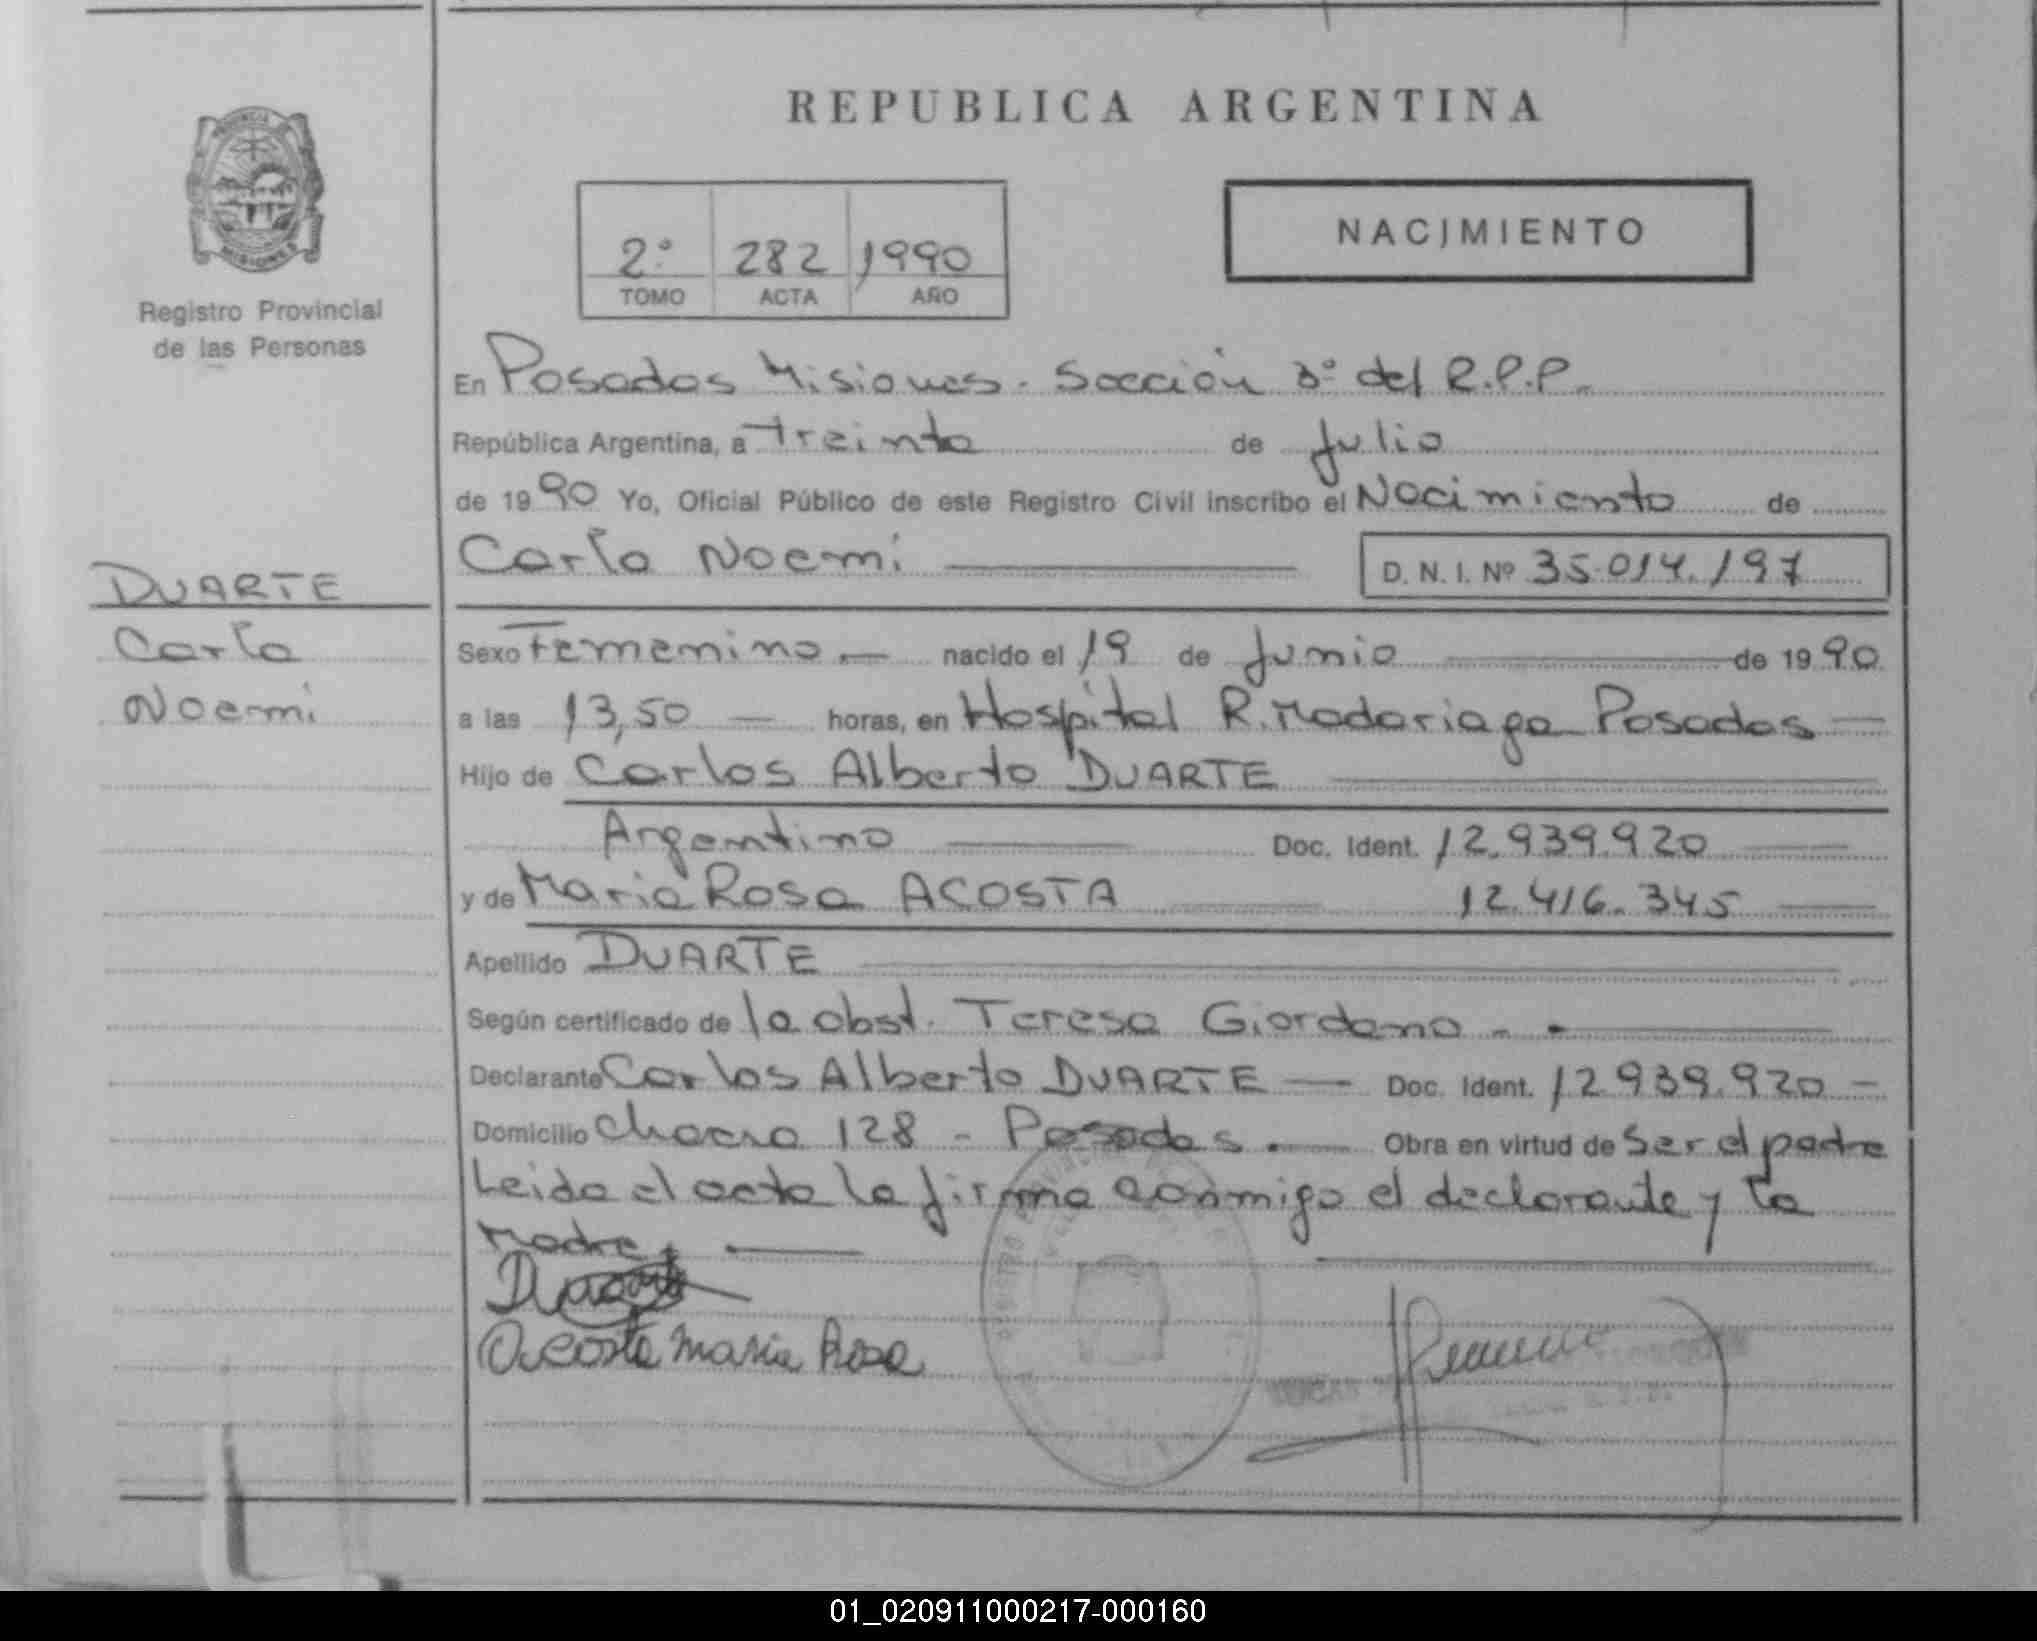 REPUBLICA ARGENTINA
PROVINCIA
MISIONES
Registro Provincial
de las Personas
2º 282 1990
TOMO ACTA AÑO
NACIMIENTO
En Posadas Misiones. Sección 3º del R.P.P.
República Argentina, a treinta de Julio
de 1990 Yo, Oficial Público de este Registro Civil inscribo el Nacimiento de
Carla Noemi D. N. I. Nº 35.014.197
DUARTE
Carla
Noemi
Sexo Femenino.— nacido el 19 de Junio de 1990
a las 13,50 — horas, en Hospital R. Madariaga Posadas —
Hijo de Carlos Alberto DUARTE
Argentino Doc. Ident. 12.939.920
y de Maria Rosa ACOSTA 12.416.345
Apellido DUARTE
Según certificado de la obst. Teresa Giordano - -
Declarante Carlos Alberto DUARTE — Doc. Ident. 12.939.920 -
Domicilio Chacra 128 - Posadas. Obra en virtud de Ser el padre
Leida el acta la firma conmigo el declarante y la
Madre.
Duarte
Acosta Maria Rosa
01_020911000217-000160